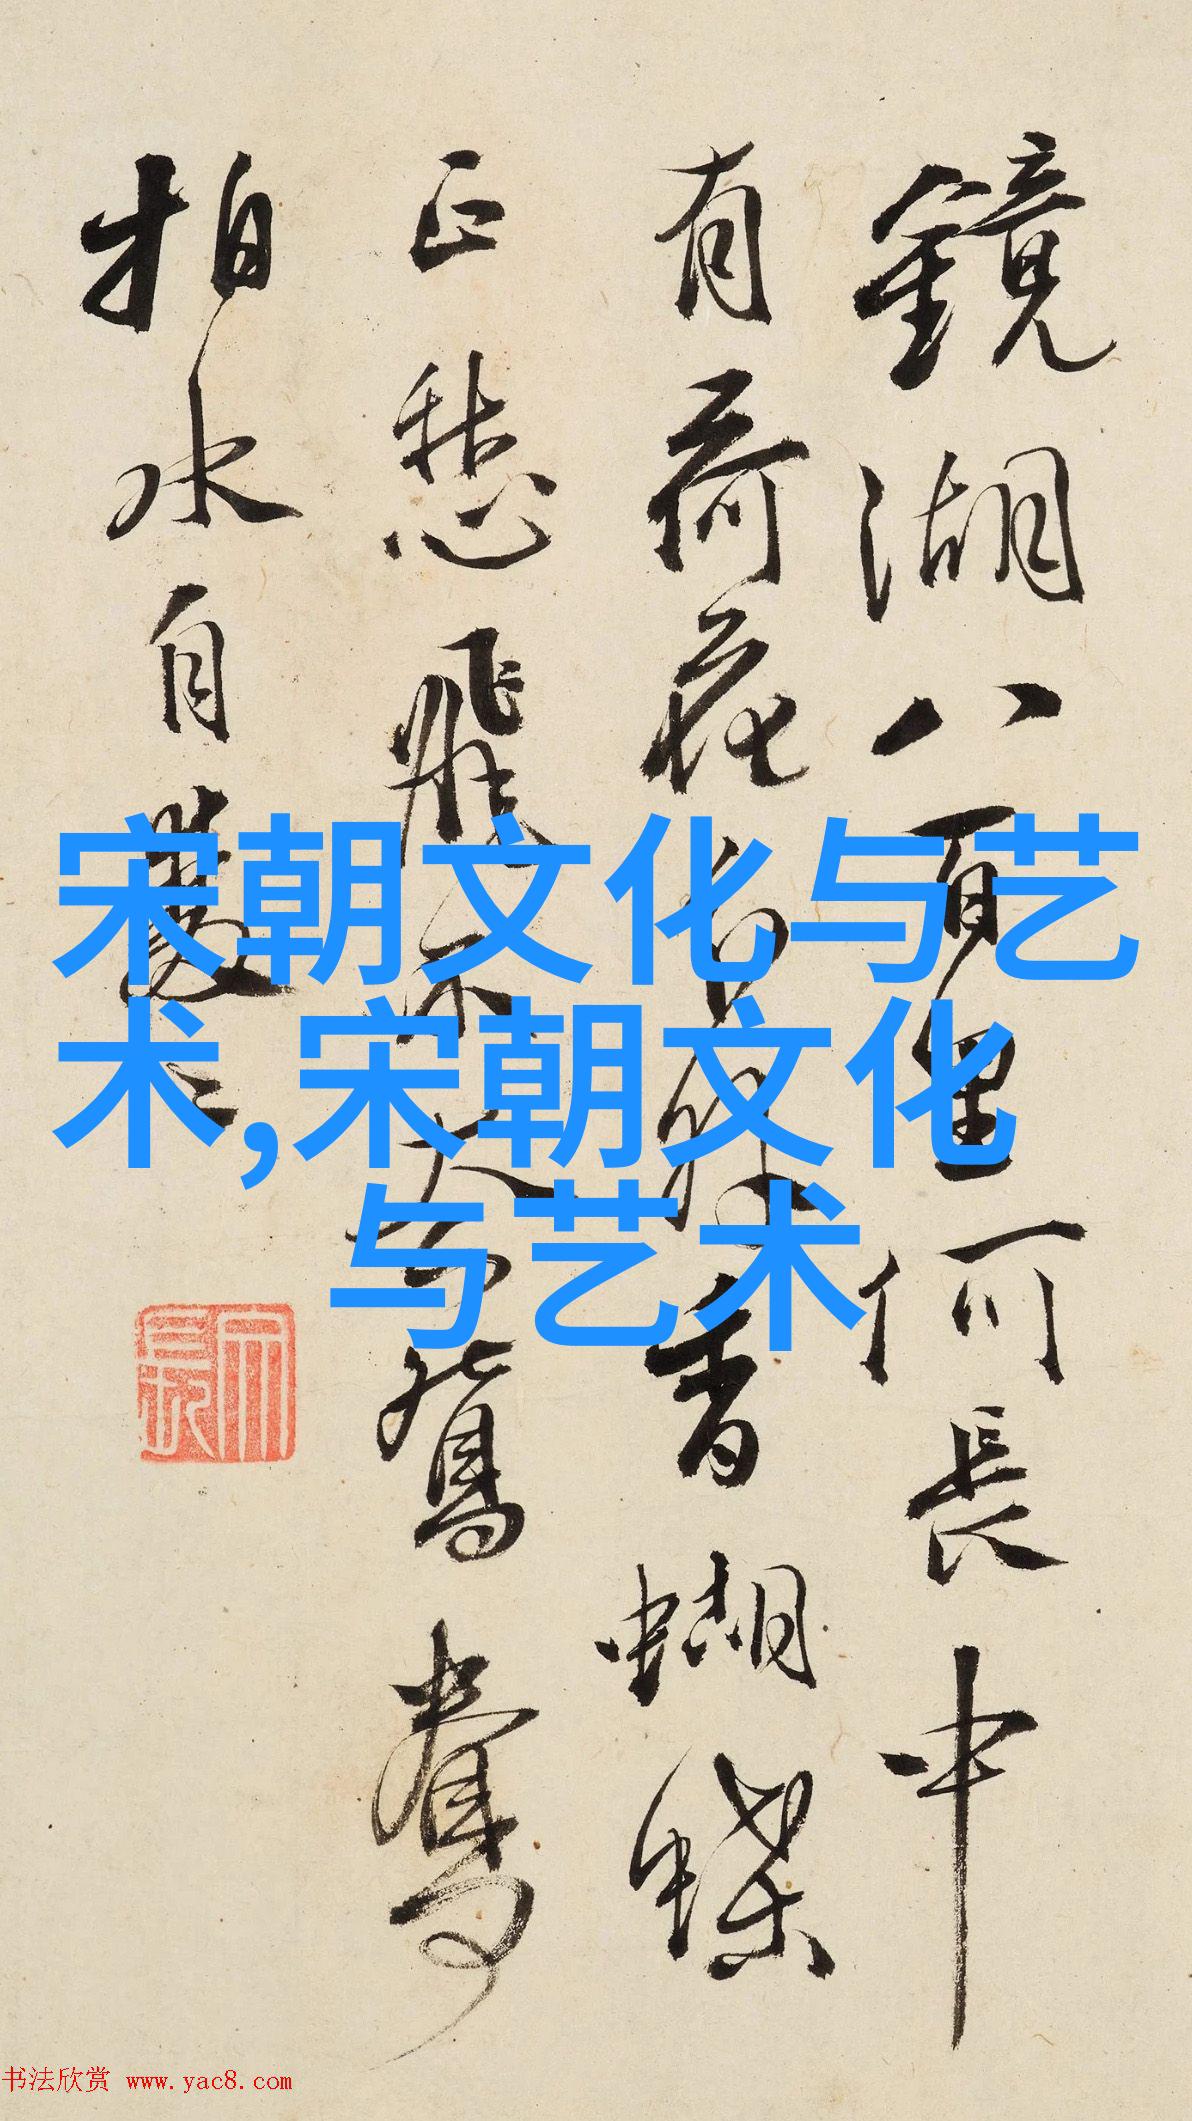 宋朝文化与艺
术,宋朝文化
与艺术
鏡湖八百里何長中
有荷花分外香蝴蝶
正愁飛不鴛鴦
拍水自雙
书法欣赏 www.yac8.com